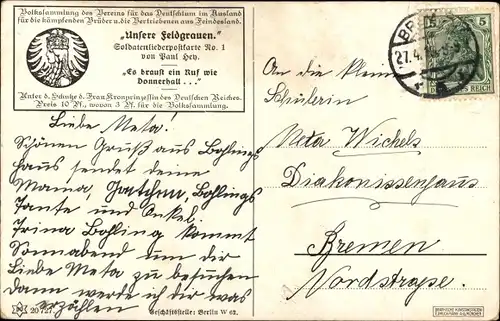 Volkssammlung des Vereins für das Deutschtum im Ausland
für die kämpfenden Brüder u. die Vertriebenen aus Feindesland.
„Unsere Feldgrauen.“
Soldatenliederpostkarte No. 1
von Paul Hey.
„Es braust ein Ruf wie
Donnerhall...“
Unter d. Schutze d. Frau Kronprinzessin des Deutschen Reiches.
Preis 10 Pf., wovon 3 Pf. für die Volkssammlung.
Liebe Meta!
Schönen Gruß aus Bohlings
Haus sendet deine
Mama, Gretchen, Bohlings
Tante und Onkel.
Trina Bohling kommt
Sonnabend um dir
Liebe Meta zu besuchen
Dann werde ich dir was
erzählen
20727
Geschäftsstelle: Berlin W 62.
An die kleine
Schülerin
Meta Wichels
Diakonissenhaus
Bremen
Nordstraße.
27.4.
5
DEUTSCHES REICH